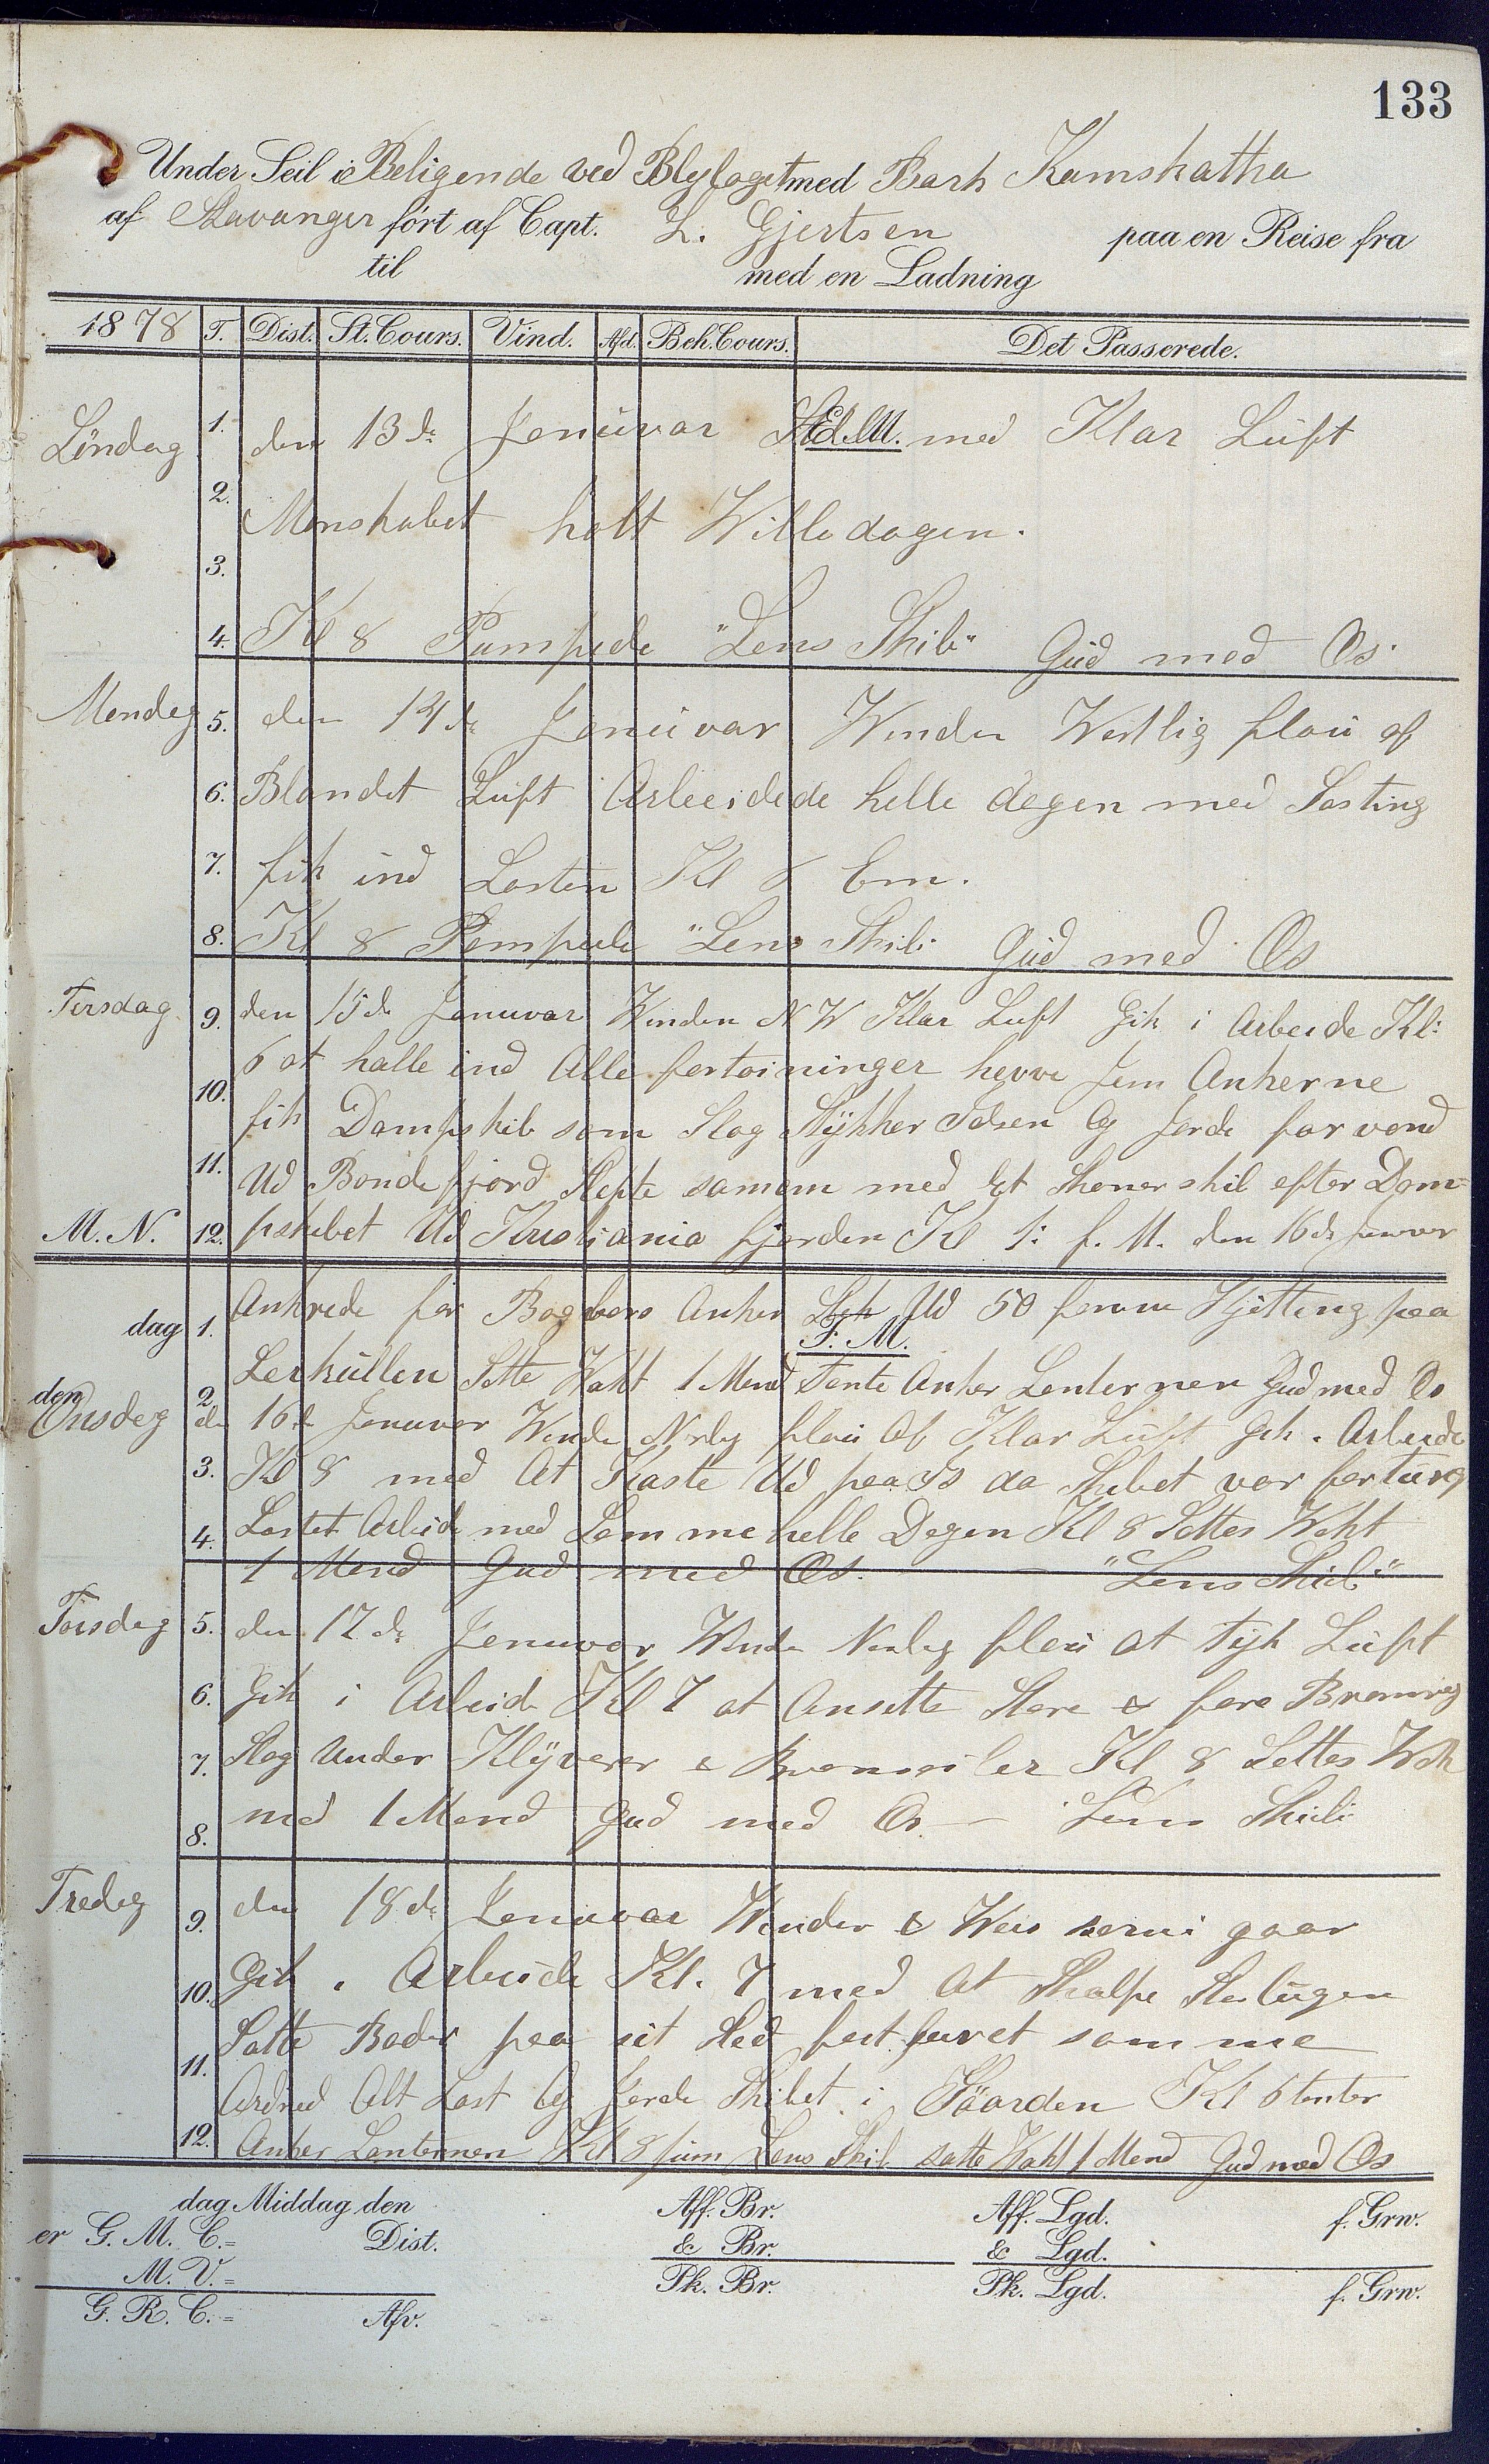 133
Under Seil i Beligende ved Blylaget med Bark Kamskatka
af Stavanger ført af Capt. L. Gjertsen paa en Reise fra
til med en Ladning
1878 T. Dist. St. Cours. Vind. Afd. Beh. Cours. Det Passerede.
Söndag 1. den 13de Januvar E. M. med Klar Luft
2. Manskabet holt Willedagen.
3.
4. Kl 8 Pumpede "Lens Skib" Gud med Os.
Mandag 5. den 14de Januvar Winden Westlig flau af
6. Blandet Luft Arbeidede helle dagen med Lasting
7. fik ind Lasten Kl 8 Em.
8. Kl 8 Pompede "Lens Skib" Gud med Os
Tirsdag 9. den 15de Januvar Winden N W Klar Luft Gik i Arbeide Kl:
6 at halle ind Alle fortoininger hevve jem Ankerne
10. fik Dampskib som Slog Stykker Isen Og Jorde farvand
11. Ud Bondefjord Slepte samem med Et Skonerskib efter Dam=
M. N. 12. pskibet Ud Kristiania fjorden Kl 1: f. M. den 16de Januvar
dag 1. Ankrede for Bagbors Anker Stak Ud 50 favne Kjitting paa
F. M.
Lerkullen Sette Wakt 1 Mand Tente Anker Lenternen Gud med Os
den Onsdag 2. den 16de Januvar Winden Norlig flau Af Klar Luft Gik i Arbeide
3. Kl 8 med At Kaste Ud paa Is da Skibet var for tung
4. Lastet Arbeide med Samme helle Dagen Kl 8 Settes Wakt
1 Mand Gud med Os. "Lens Skib"
Torsdag 5. den 17de Januvar Winden Norlig flau at Tyk Luft
6. Gik i Arbeide Kl 7 at Ansette Store & fore Bramrig
7. Slog Under Klyverer & Bramseiler Kl 8 Settes Wak
8. med 1 Mand Gud med Os — Lens Skib
Fredag 9. den 18de Januvar Winden & Weir som i gaar
10. Gik i Arbeide Kl. 7 med At Skalpe Storlugen
Satte Boder paa sit Sted fast suret samme
11. Ardned Alt Last Og Jorde Skibet i Söorden Kl 6 tenter
12. Anker Lanternen Kl 8 pum Lens Skib satte Wakt 1 Mand Gud med Os
dag Middag den Aff. Br. Aff. Lgd. f. Grw.
er G. M. C.= Dist. & Br. & Lgd.
M. V.= Pk. Br. Pk. Lgd. f. Grw.
G. R. C.= Afv.